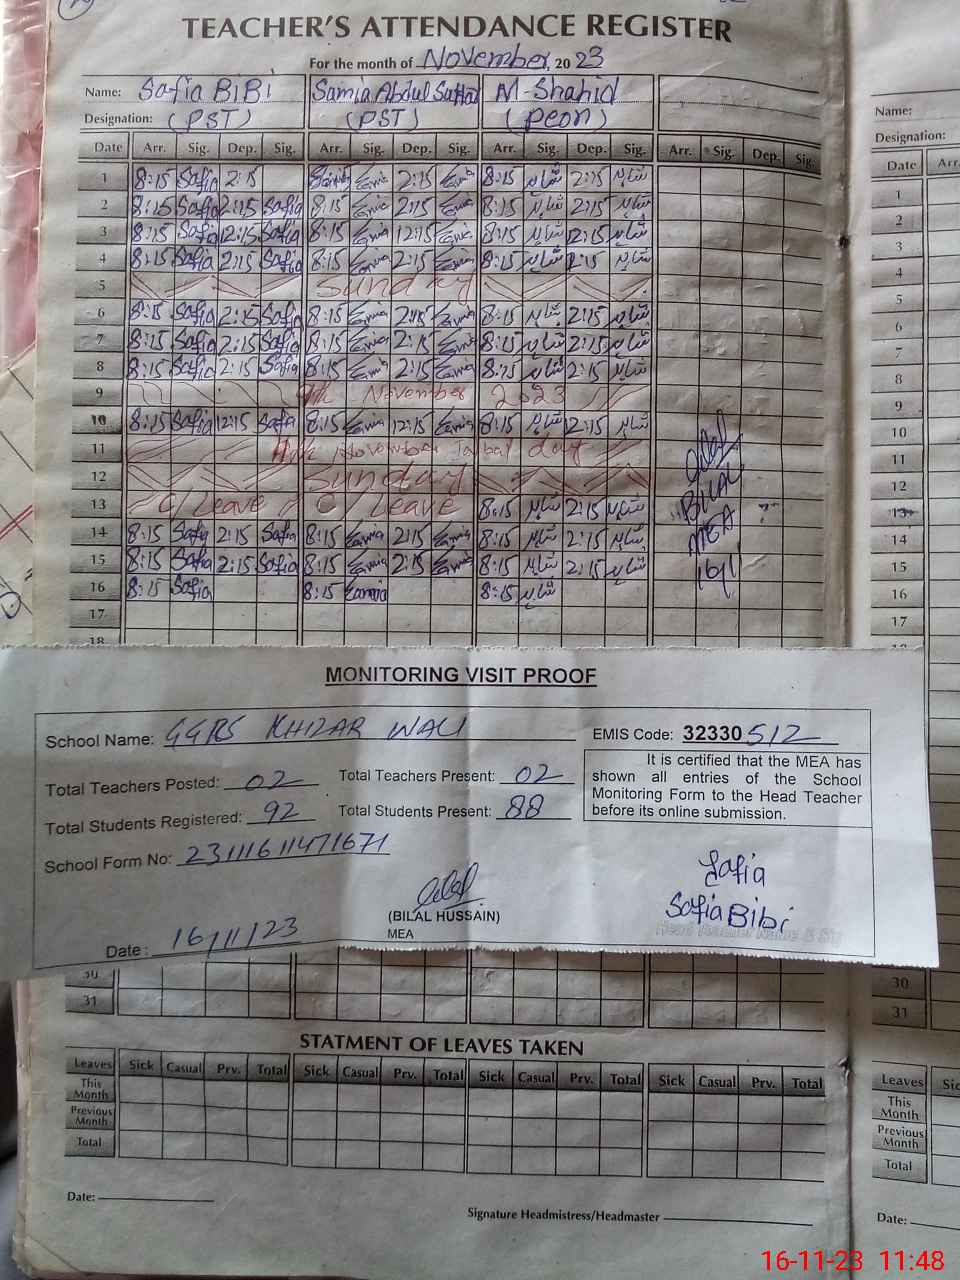 TEACHER'S ATTENDANCE REGISTER
For the month of November, 2023
Name: Safia BiBi Samia Abdul Sattar M-Shahid
Designation: (PST) (PST) (Peon)
Date Arr. Sig. Dep. Sig. Arr. Sig. Dep. Sig. Arr. Sig. Dep. Sig. Arr. Sig. Dep. Sig.
1 8:15 Safia 2:15 2:15 8:15 2:15
2 8:15 Safia 2:15 Safia 8:15 2:15 8:15 2:15
3 8:15 Safia 12:15 Safia 8:15 12:15 8:15 12:15
4 8:15 Safia 2:15 Safia 8:15 2:15 8:15 2:15
5 Sunday
6 8:15 Safia 2:15 Safia 8:15 2:15 8:15 2:15
7 8:15 Safia 2:15 Safia 8:15 2:15 8:15 2:15
8 8:15 Safia 2:15 Safia 8:15 2:15 8:15 2:15
9 9th November 2023
10 8:15 Safia 12:15 Safia 8:15 12:15 8:15 12:15
11 November day
12 Sunday
13 C/Leave C/Leave 8:15 2:15
14 8:15 Safia 2:15 Safia 8:15 2:15 8:15 2:15
15 8:15 Safia 2:15 Safia 8:15 2:15 8:15 2:15
16 8:15 Safia 8:15 8:15
17
18
BILAL
MEA
16/11
Name:
Designation:
Date Arr.
1
2
3
4
5
6
7
8
9
10
11
12
13
14
15
16
17
MONITORING VISIT PROOF
School Name: GGPS KHIZAR WALI EMIS Code: 32330512
Total Teachers Posted: 02 Total Teachers Present: 02
Total Students Registered: 92 Total Students Present: 88
It is certified that the MEA has
shown all entries of the School
Monitoring Form to the Head Teacher
before its online submission.
School Form No: 23111611471671
(BILAL HUSSAIN)
MEA
Safia
Safia Bibi
Head Teacher Name & Sig
Date: 16/11/23
30
31
30
31
STATMENT OF LEAVES TAKEN
Leaves Sick Casual Prv. Total Sick Casual Prv. Total Sick Casual Prv. Total Sick Casual Prv. Total
This Month
Previous Month
Total
Leaves
This Month
Previous Month
Total
Date:
Signature Headmistress/Headmaster
Date:
16-11-23 11:48